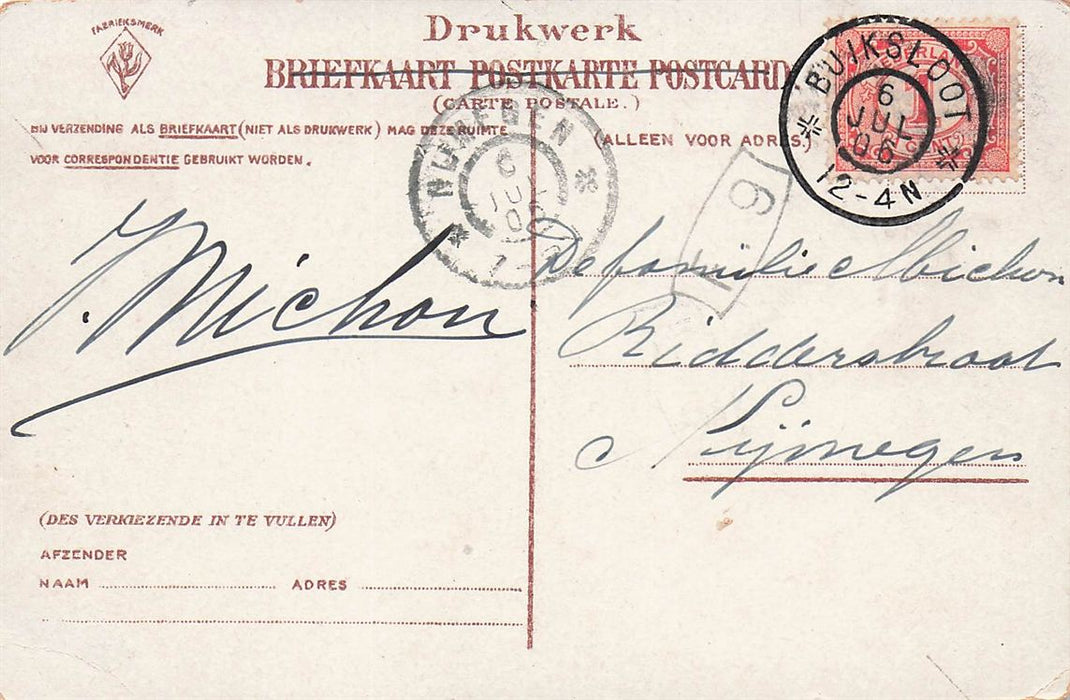 FABRIEKSMERK
Drukwerk
BRIEFKAART POSTKARTE POSTCARD
(CARTE POSTALE.)
BIJ VERZENDING ALS BRIEFKAART (NIET ALS DRUKWERK) MAG DEZE RUIMTE
VOOR CORRESPONDENTIE GEBRUIKT WORDEN.
(ALLEEN VOOR ADRES.)
BUIKSLOOT
6
JUL
06
12-4N
NEDERLAND
1
CENT
NIJMEGEN
6
JUL
06
9
J. Michon
De familie Michon
Ridderstraat
Nijmegen
(DES VERKIEZENDE IN TE VULLEN)
AFZENDER
NAAM ADRES